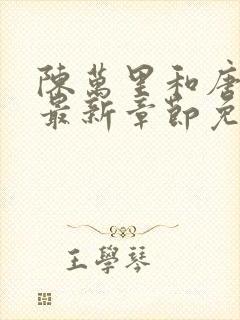 陳萬里和唐
最新章節免
王學琴